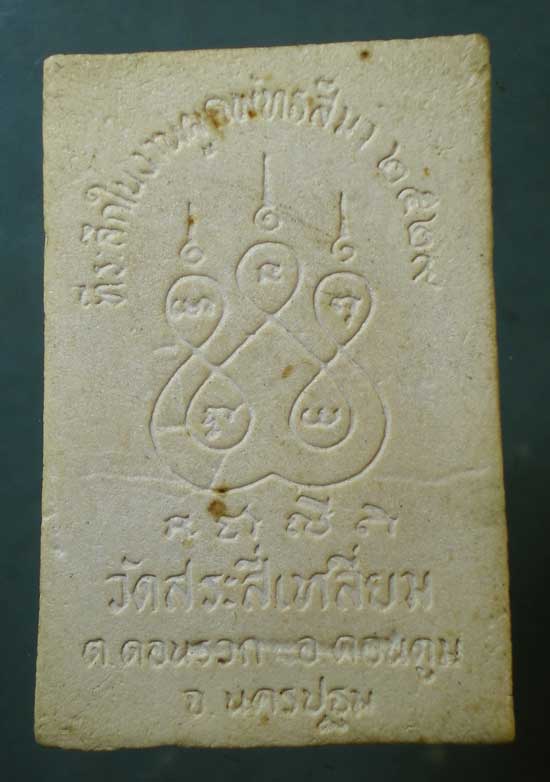 ที่ระลึกในงานผูกพัทธสีมา ๒๕๒๙
วัดสระสี่เหลี่ยม
ต.ดอนรวก อ.ดอนตูม
จ.นครปฐม